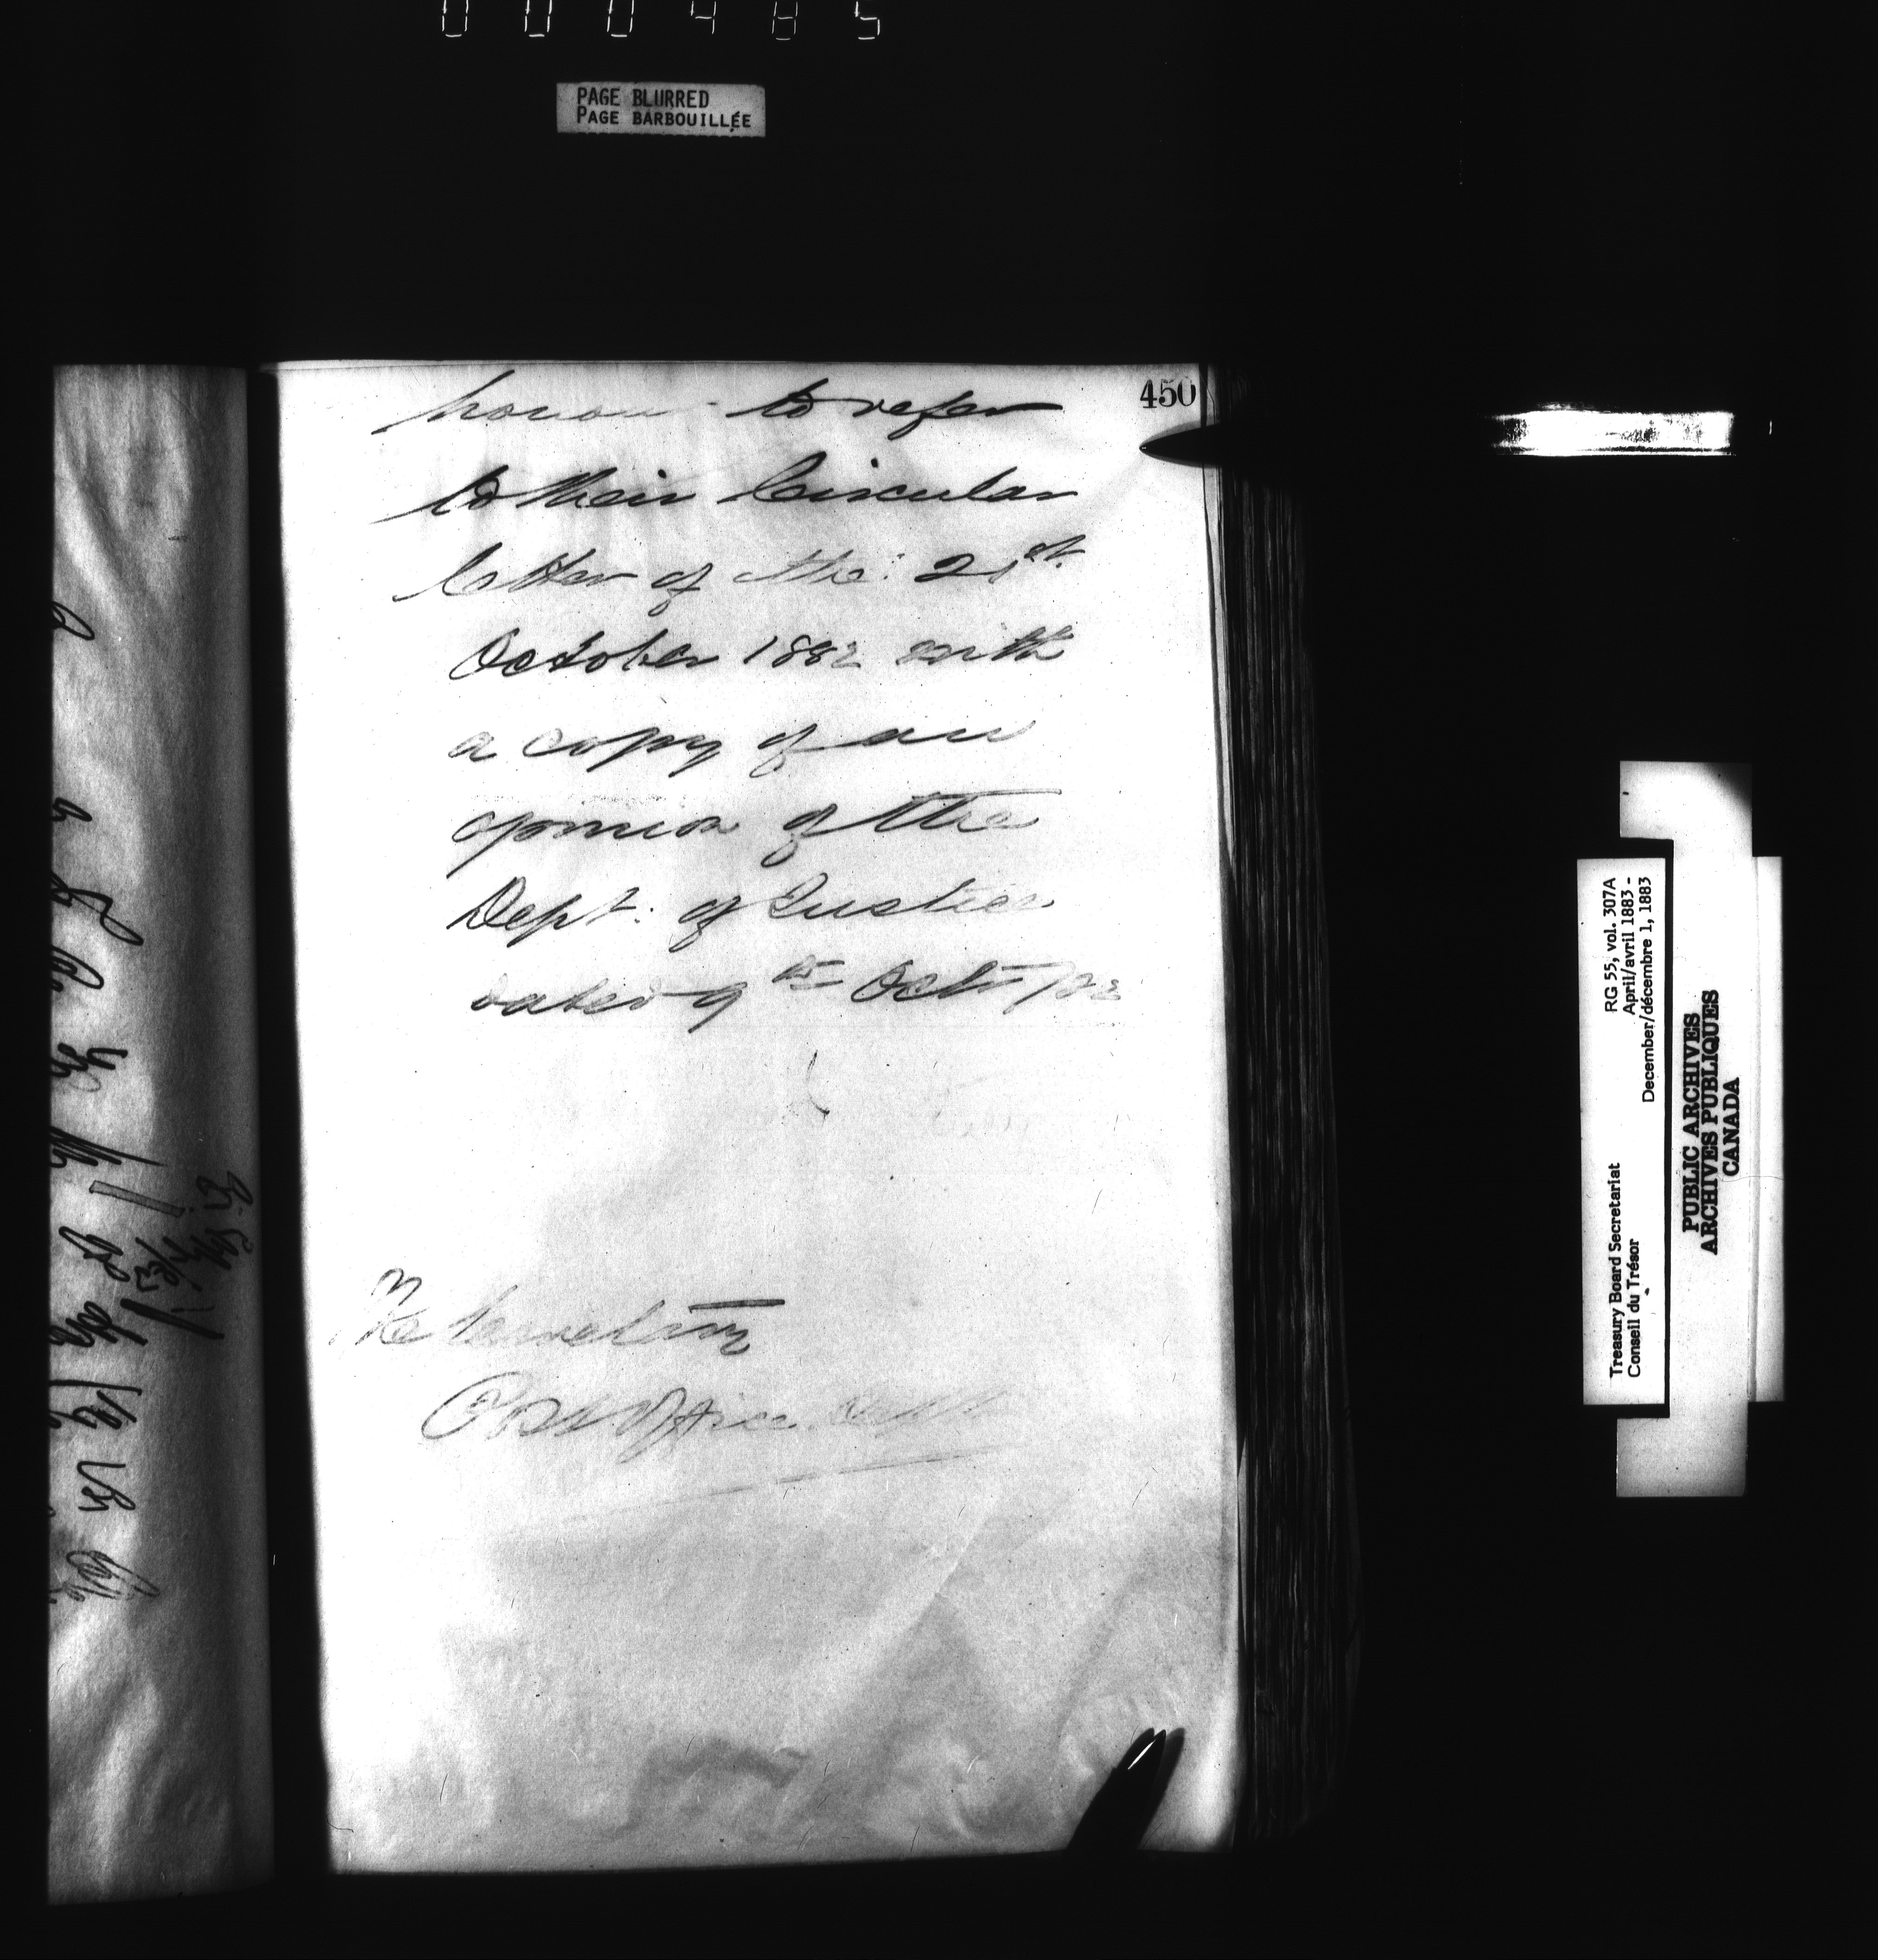 000485
PAGE BLURRED
PAGE BARBOUILLÉE
450
honour to refer
to their Circular
letter of the 21st
October 1882 with
a copy of an
opinion of the
Dept. of Justice
dated 9th Oct /82
The Secretary
Post Office Dept
RG 55, vol. 307A
April/avril 1883 -
December/décembre 1, 1883
Treasury Board Secretariat
Conseil du Trésor
PUBLIC ARCHIVES
ARCHIVES PUBLIQUES
CANADA